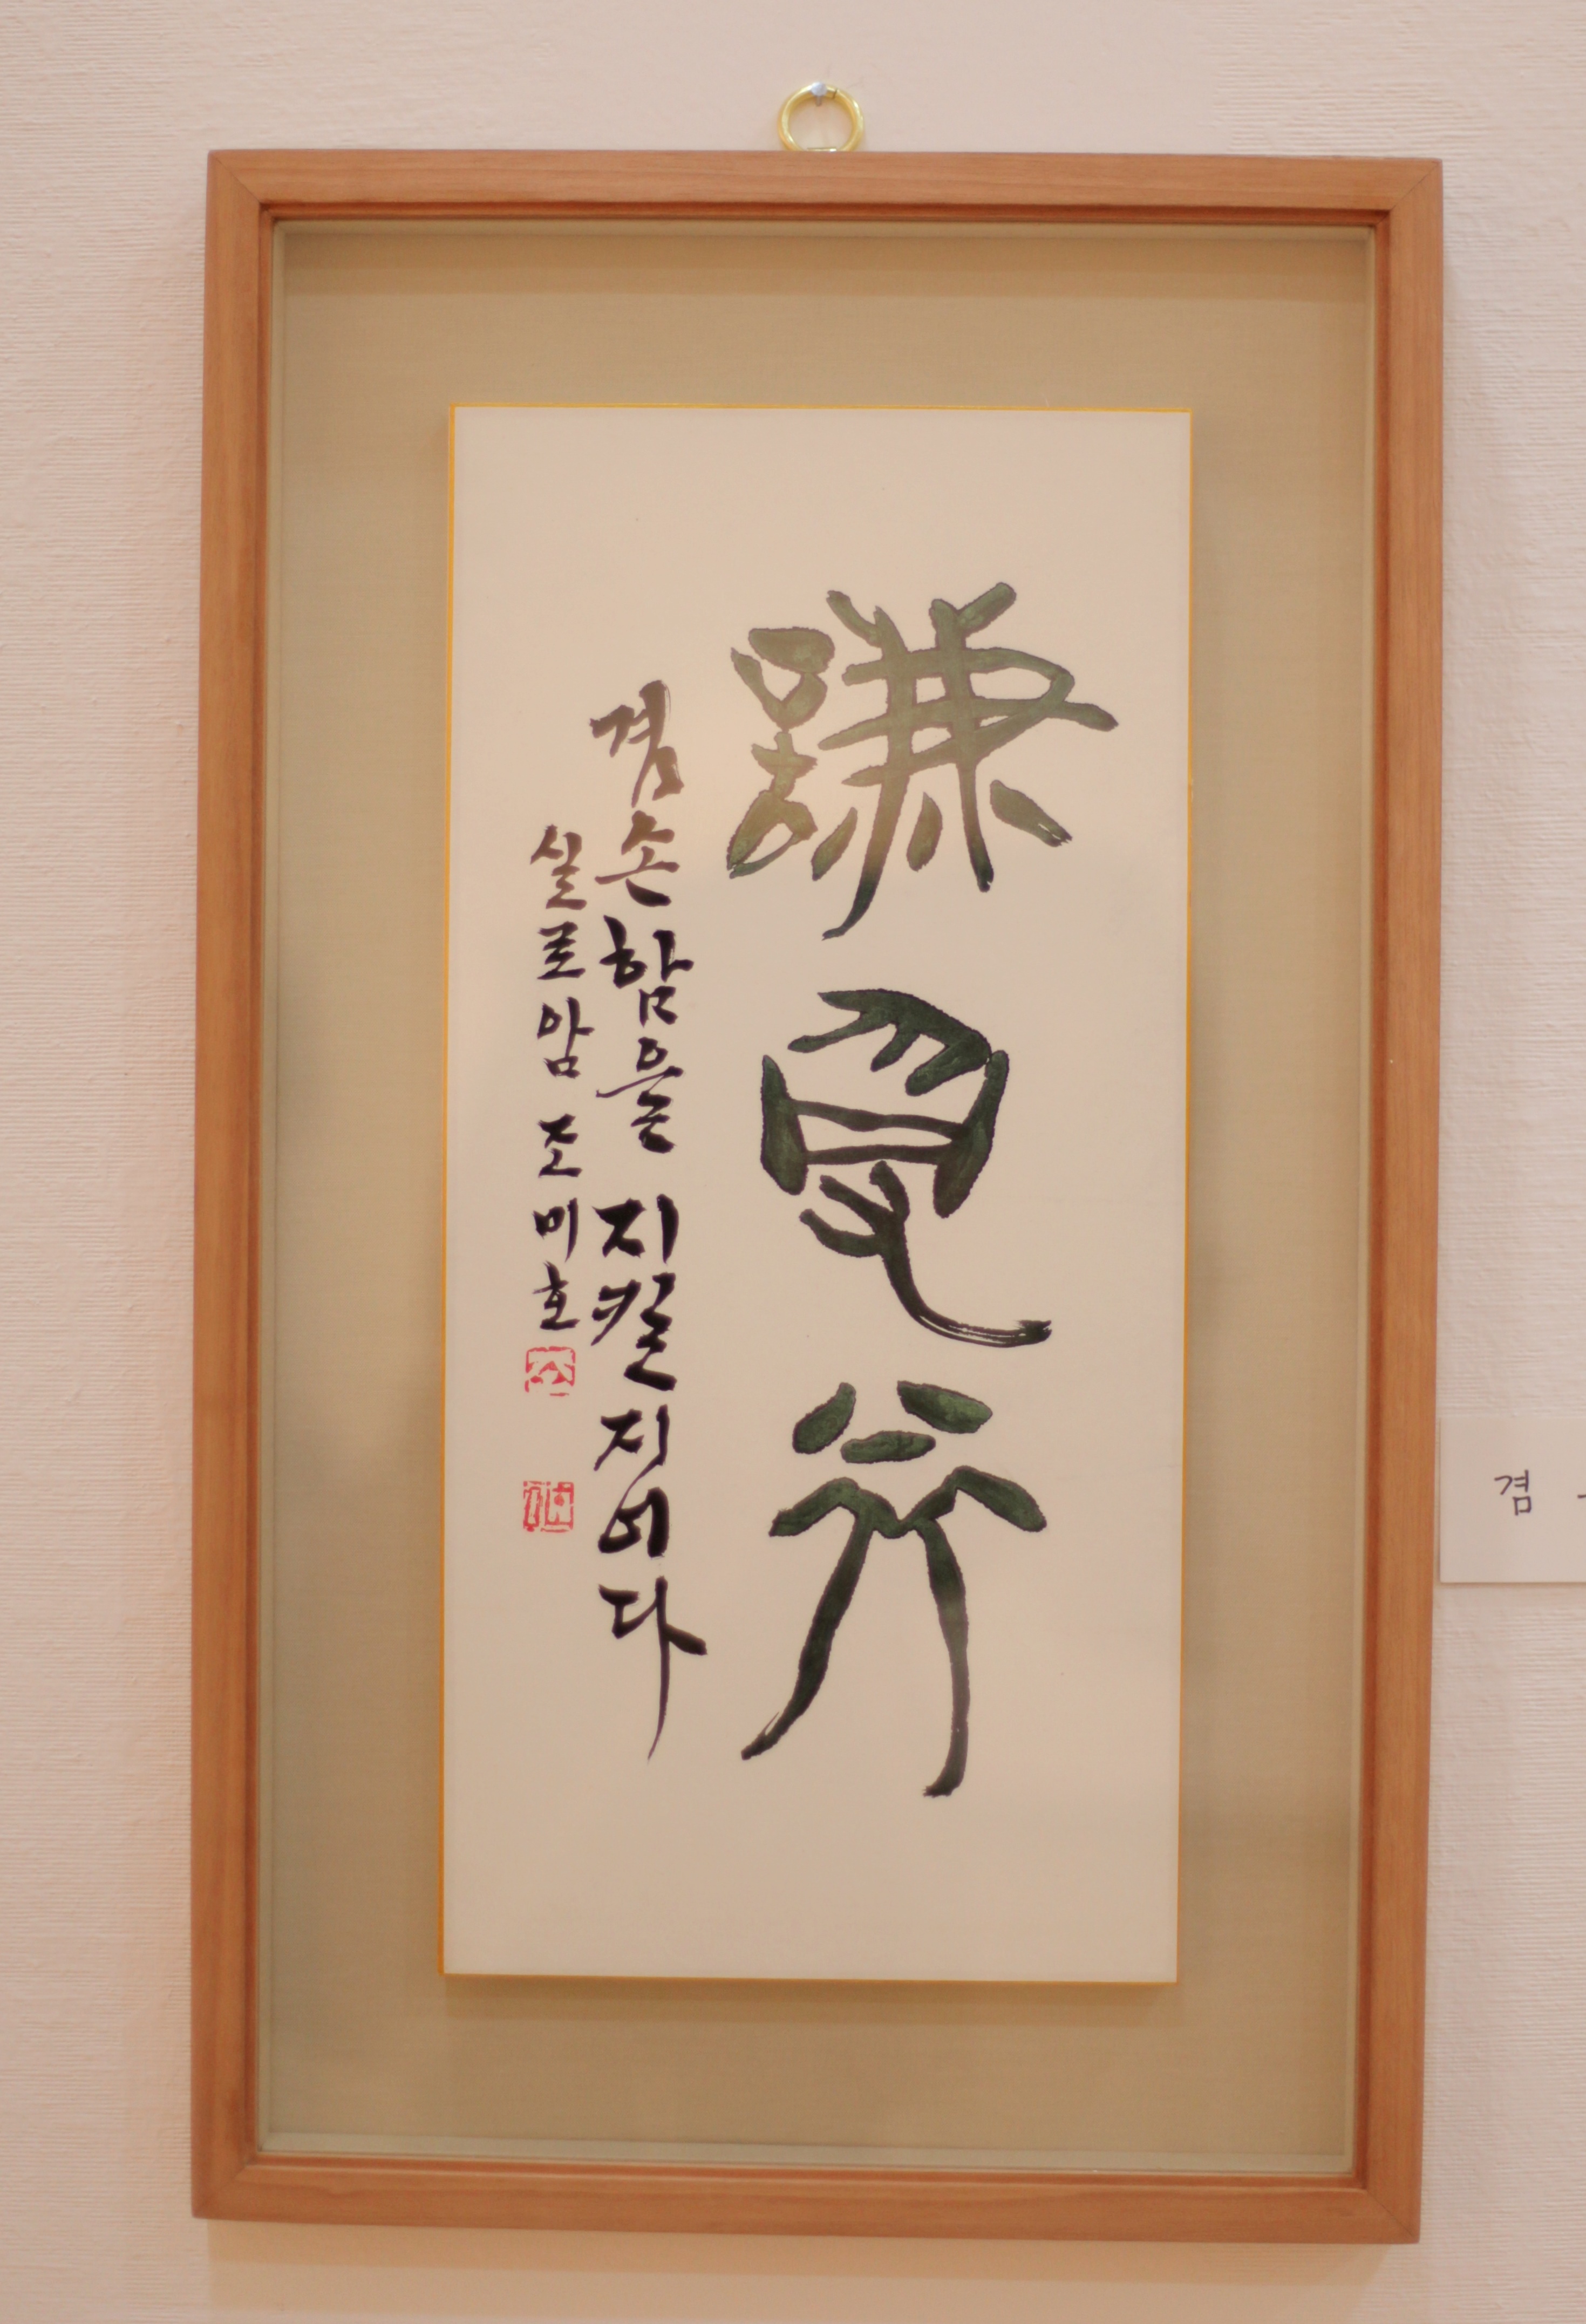 謙受益
겸손함을 지킬지어다
실로암 조미호
겸